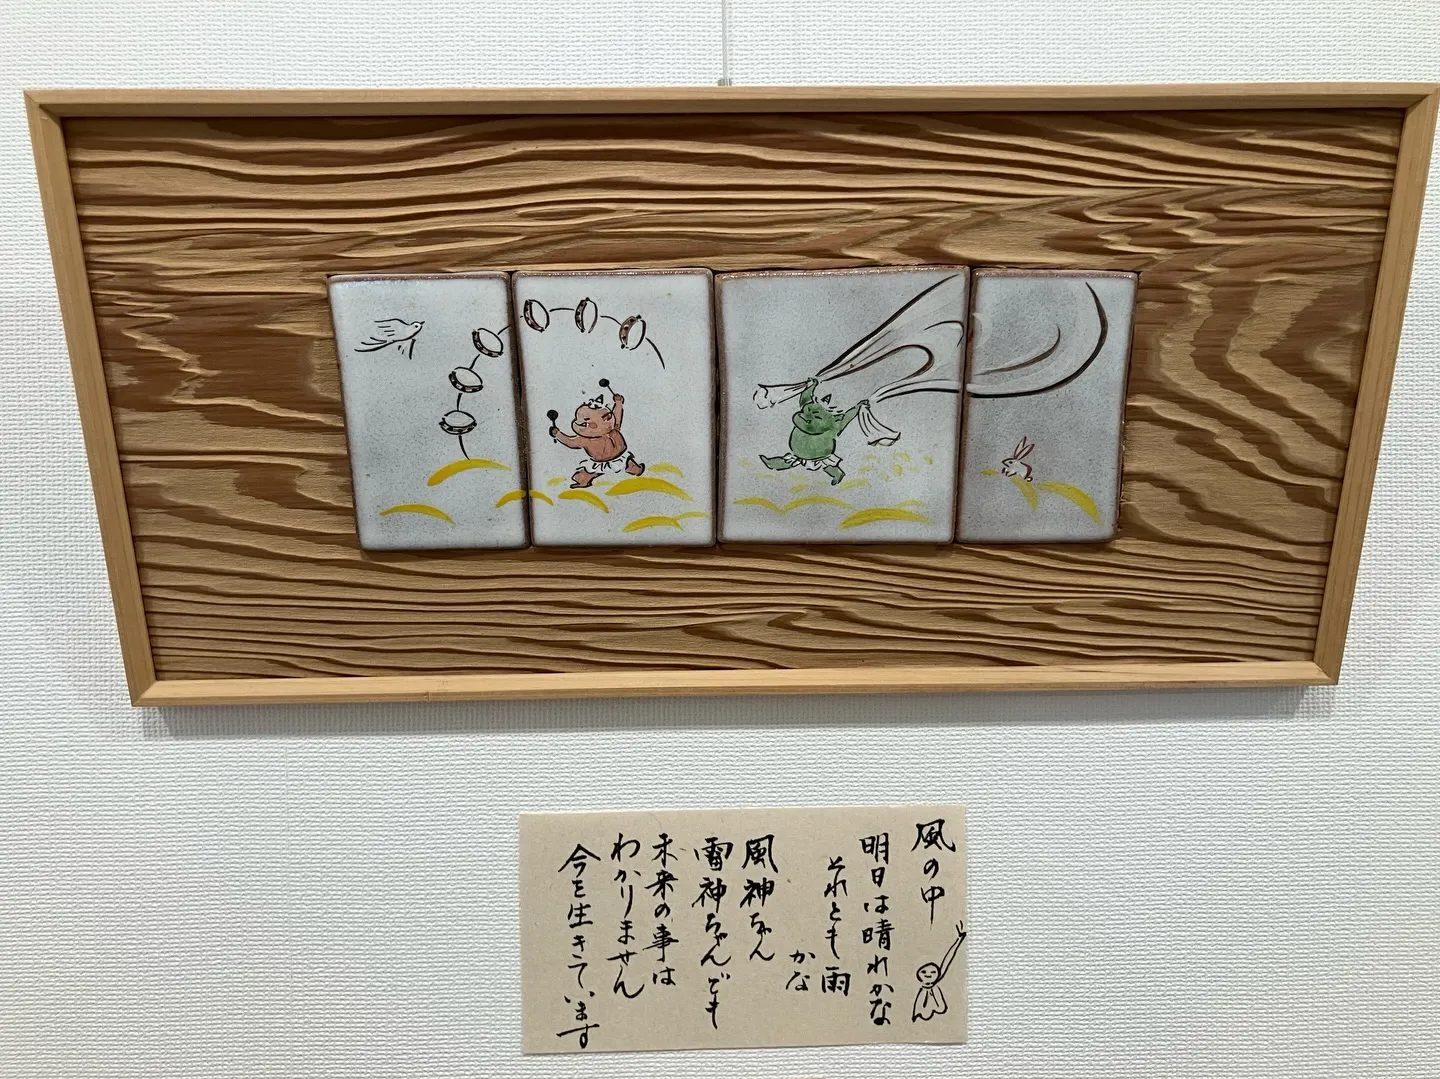 風の中
明日は晴れかな
それとも雨
かな
風神ちゃん
雷神ちゃんでも
未来の事は
わかりません
今を生きています